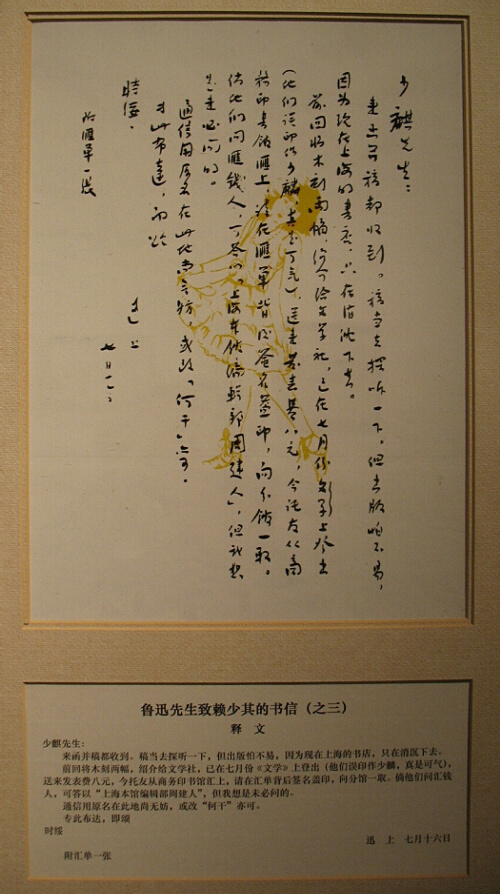 少麒先生：
来函并稿都收到。稿当去探听一下，但出版怕不易，
因为现在上海的书店，只在消沈下去。
前回将木刻两幅，绍介给文学社，已在七月份文学上登出
（他们误印作少麟，真是可气），送来发表费八元，今托友从商
务印書館匯上，請在匯單背后签名盖印，向分館一取。
倘他们问匯錢人，可答以「上海本館編輯部周建人」，但我想
是未必问的。
通信用原名在此地尚无妨，或改「何干」亦可。
专此布達，即颂
時绥。
迅 上
七月十六日
附匯單一张
鲁迅先生致赖少其的书信（之三）
释 文
少麒先生:
来函并稿都收到。稿当去探听一下，但出版怕不易，因为现在上海的书店，只在消沉下去。
前回将木刻两幅，绍介给文学社，已在七月份《文学》上登出（他们误印作少麟，真是可气），
送来发表费八元，今托友从商务印书馆汇上，请在汇单背后签名盖印，向分馆一取。倘他们问汇钱
人，可答以“上海本馆编辑部周建人”，但我想是未必问的。
通信用原名在此地尚无妨，或改“何干”亦可。
专此布达，即颂
时绥
迅 上 七月十六日
附汇单一张